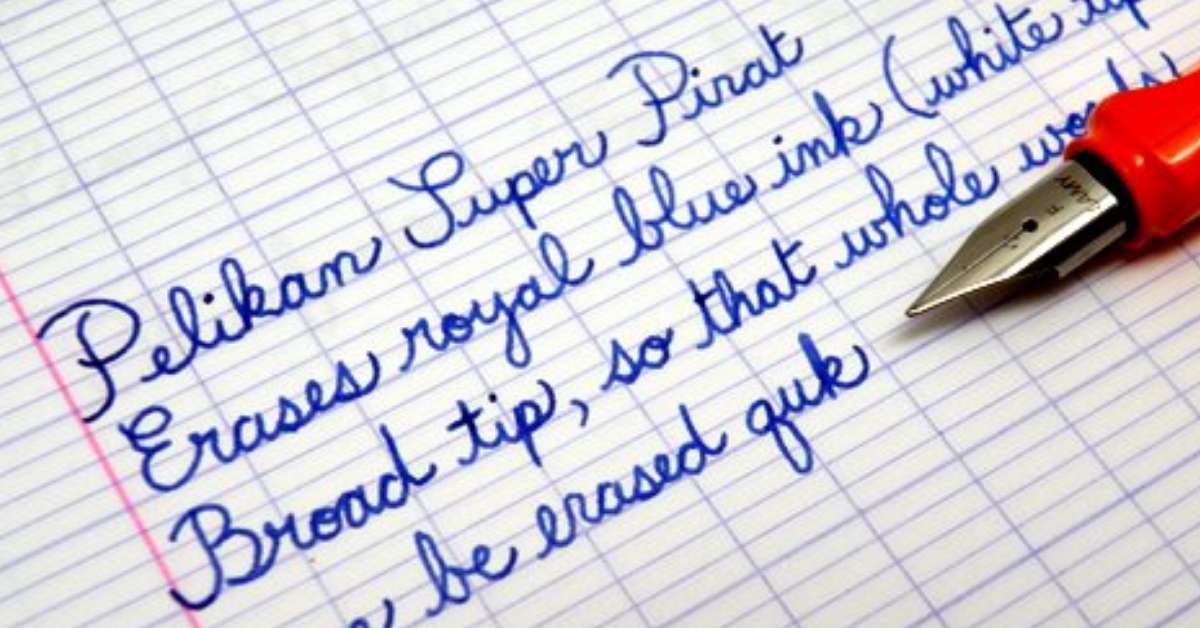 Pelikan Super Pirat
Erases royal blue ink (white
Broad tip, so that whole words
be erased quk
LAMY
F